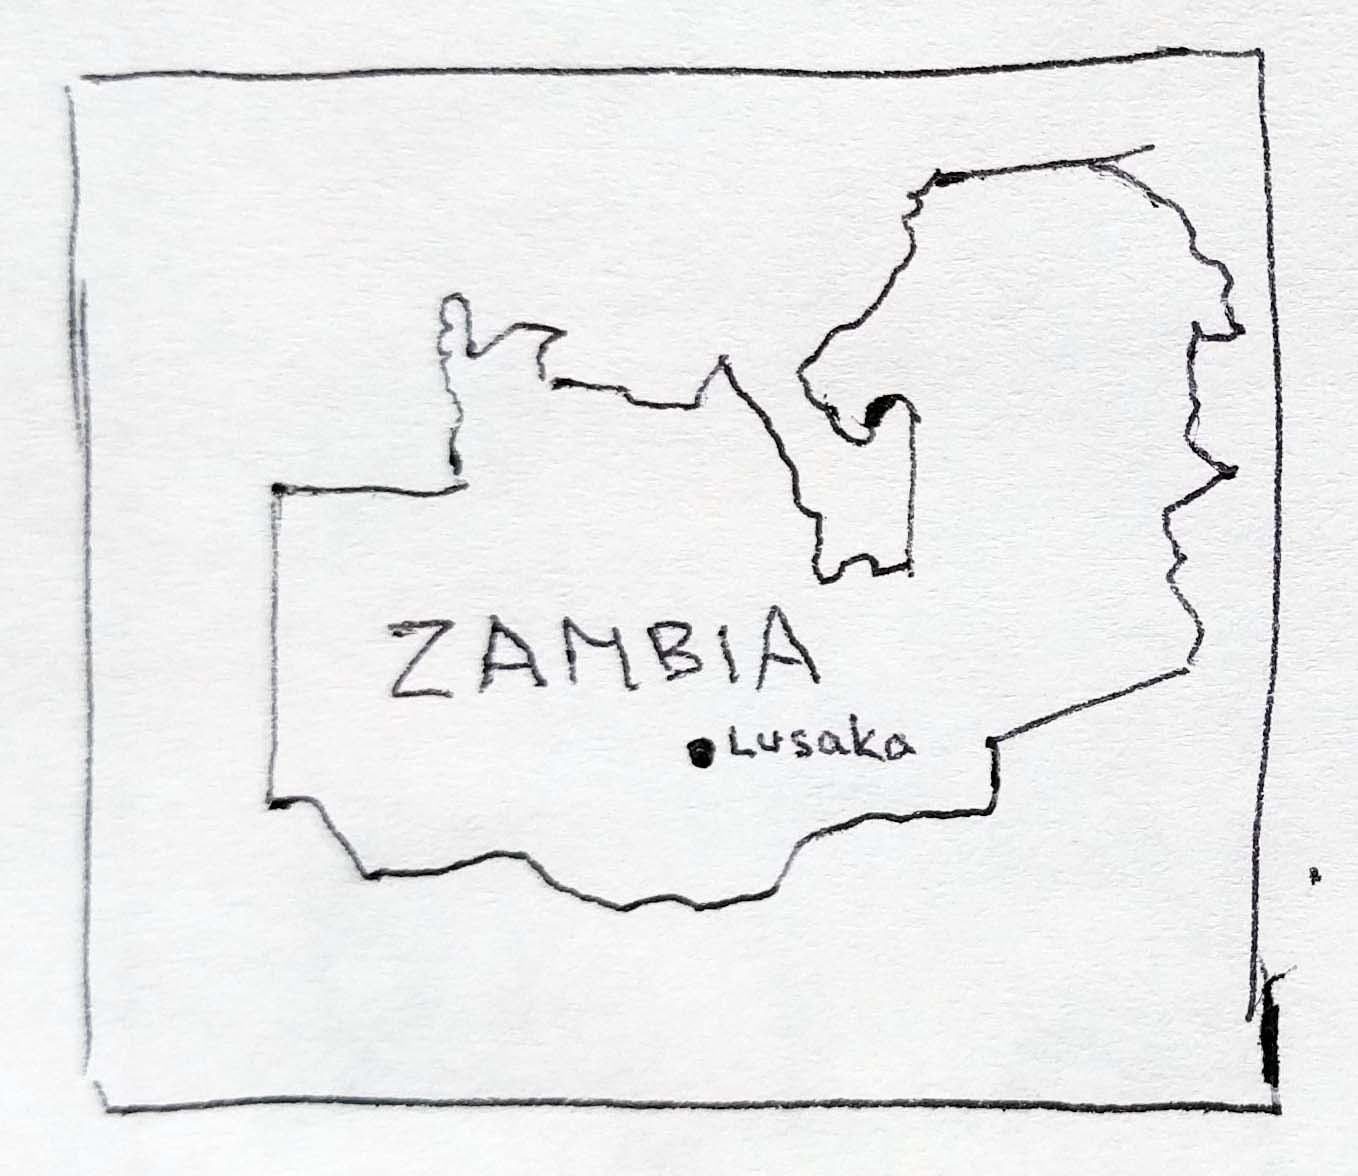 ZAMBIA
Lusaka